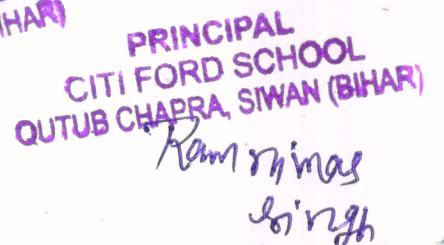 IHAR)
PRINCIPAL
CITI FORD SCHOOL
QUTUB CHAPRA, SIWAN (BIHAR)
Singh